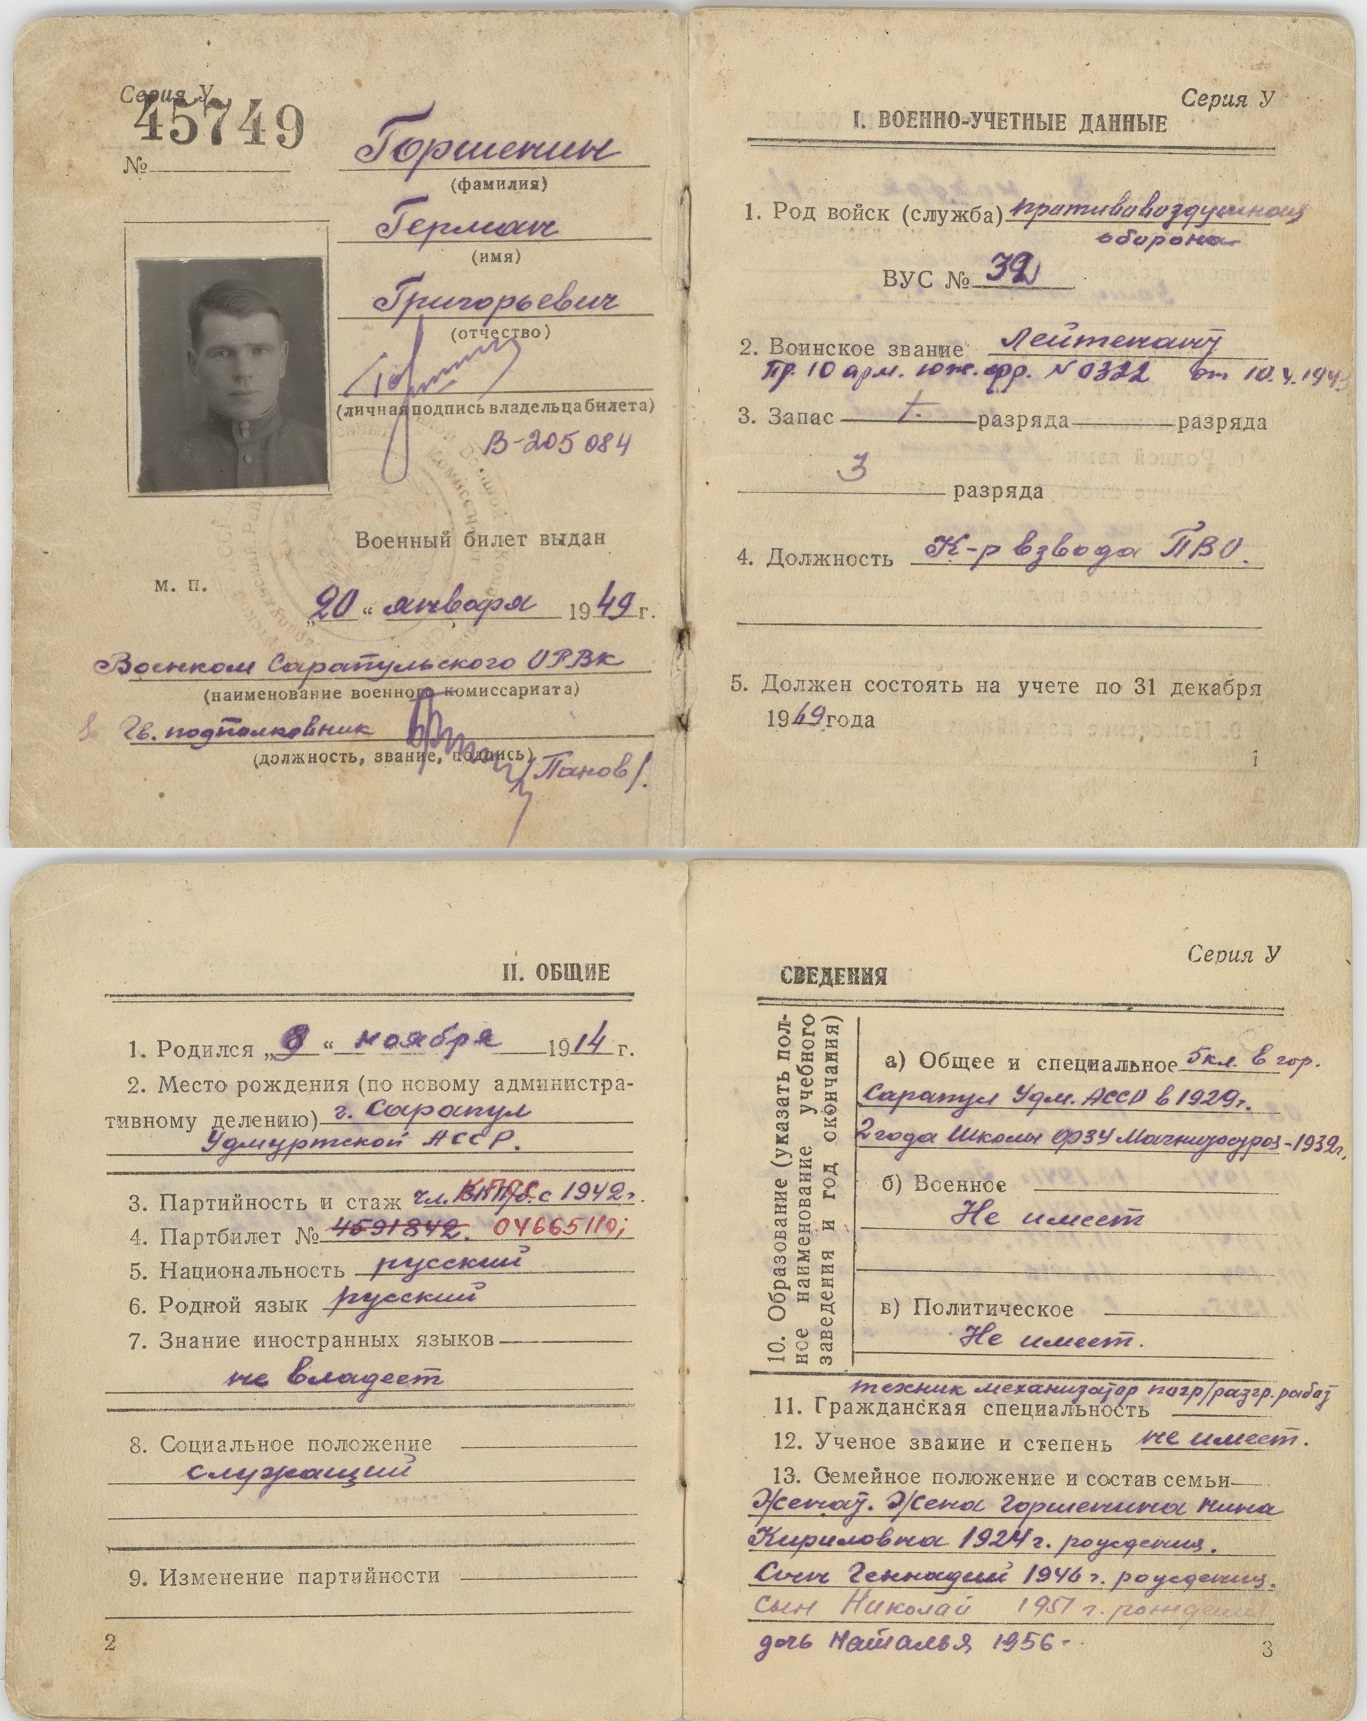 Серия У
45749
№
Горшенин
(фамилия)
Герман
(имя)
Григорьевич
(отчество)
(личная подпись владельца билета)
В-205084
Военный билет выдан
м. п.
„20“ января 1949 г.
Военком Сарапульского ОРВК
(наименование военного комиссариата)
Гв. подполковник
(должность, звание, подпись)
/Панов/.
Серия У
I. ВОЕННО-УЧЕТНЫЕ ДАННЫЕ
1. Род войск (служба) противовоздушная
оборона
ВУС № 39
2. Воинское звание Лейтенант
Пр. 10 арм. юж. фр. N 0322 от 10.4.1943
3. Запас 1. разряда разряда
3 разряда
4. Должность К-р взвода ПВО.
5. Должен состоять на учете по 31 декабря
1969 года
1
II. ОБЩИЕ
1. Родился „8“ ноября 1914 г.
2. Место рождения (по новому администра-
тивному делению) г. Сарапул
Удмуртской АССР.
3. Партийность и стаж чл. КПСС с 1942 г.
4. Партбилет № 4591842. 04665110;
5. Национальность русский
6. Родной язык русский
7. Знание иностранных языков
не владеет
8. Социальное положение
служащий
9. Изменение партийности
2
Серия У
СВЕДЕНИЯ
10. Образование (указать пол-
ное наименование учебного
заведения и год окончания)
а) Общее и специальное 5кл. в гор.
Сарапул Удм. АССР в 1929г.
2 года Школы ФЗУ Магнитогорск-1932г.
б) Военное
Не имеет
в) Политическое
Не имеет.
техник механизатор погр/разгр. работ
11. Гражданская специальность
12. Ученое звание и степень не имеет.
13. Семейное положение и состав семьи
Женат. Жена Горшенина Нина
Кириловна 1924 г. рождения.
Сын Геннадий 1946 г. рождения.
сын Николай 1951 г. рождения
дочь Наталья 1956-
3